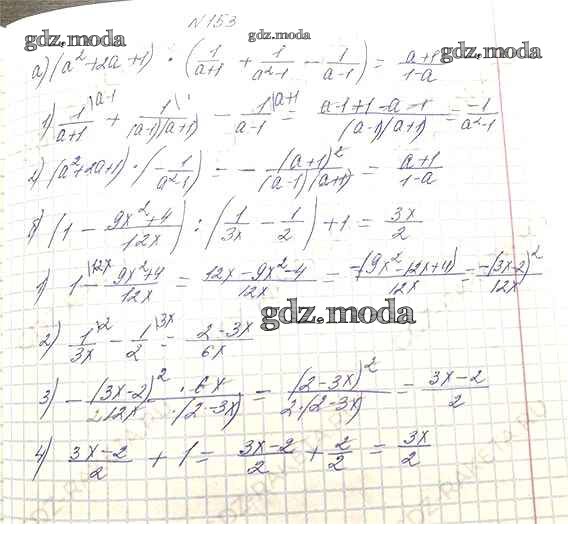 N 153
gdz.moda
gdz.moda
gdz.moda
а) (a²+2a+1) · (1/(a+1) + 1/(a²-1) - 1/(a-1)) = (a+1)/(1-a)
1) 1/(a+1) |a-1 + 1/((a-1)(a+1)) |1 - 1/(a-1) |a+1 = (a-1+1-a-1)/((a-1)(a+1)) = -1/(a²-1)
2) (a²+2a+1) · (-1/(a²-1)) = - (a+1)²/((a-1)(a+1)) = (a+1)/(1-a)
б) (1 - (9x²+4)/12x) : (1/3x - 1/2) + 1 = 3x/2
1) 1 |12x - (9x²+4)/12x = (12x-9x²-4)/12x = -(9x²-12x+4)/12x = -(3x-2)²/12x
gdz.moda
2) 1/3x |2 - 1/2 |3x = (2-3x)/6x
3) - (3x-2)² · 6x/(2 12x · (2-3x)) = (2-3x)²/(2·(2-3x)) = (3x-2)/2
4) (3x-2)/2 + 1 = (3x-2)/2 + 2/2 = 3x/2